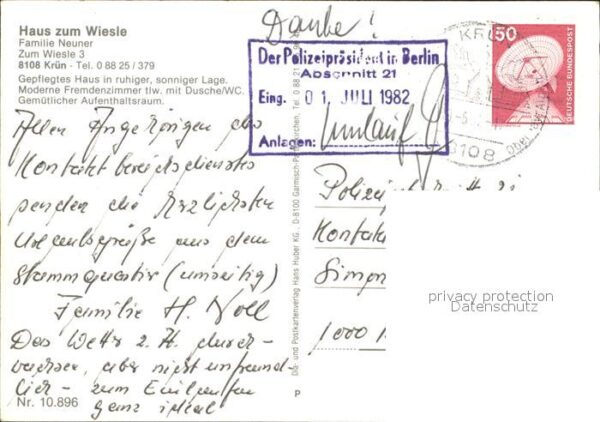 Haus zum Wiesle
Familie Neuner
Zum Wiesle 3
8108 Krün · Tel. 0 88 25 / 379
Gepflegtes Haus in ruhiger, sonniger Lage.
Moderne Fremdenzimmer tlw. mit Dusche/WC.
Gemütlicher Aufenthaltsraum.
Allen Angehörigen des
Kontaktbereichsdienstes
senden die herzlichsten
Urlaubsgrüße aus dem
Stammquartier (umseitig)
Familie H. Noll
Das Wetter z. Zt. durch-
wachsen, aber nicht unfreund-
lich - zum Einlaufen
ganz ideal
Nr. 10.896
Danke!
Der Polizeipräsident in Berlin
Abschnitt 21
Eing. 01. JULI 1982
Anlagen: Umlauf
Dia- und Postkartenverlag Hans Huber KG., D-8100 Garmisch-Partenkirchen
P
50
DEUTSCHE BUNDESPOST
KRÜN
8108
Kontakt
Simon
1000
privacy protection
Datenschutz